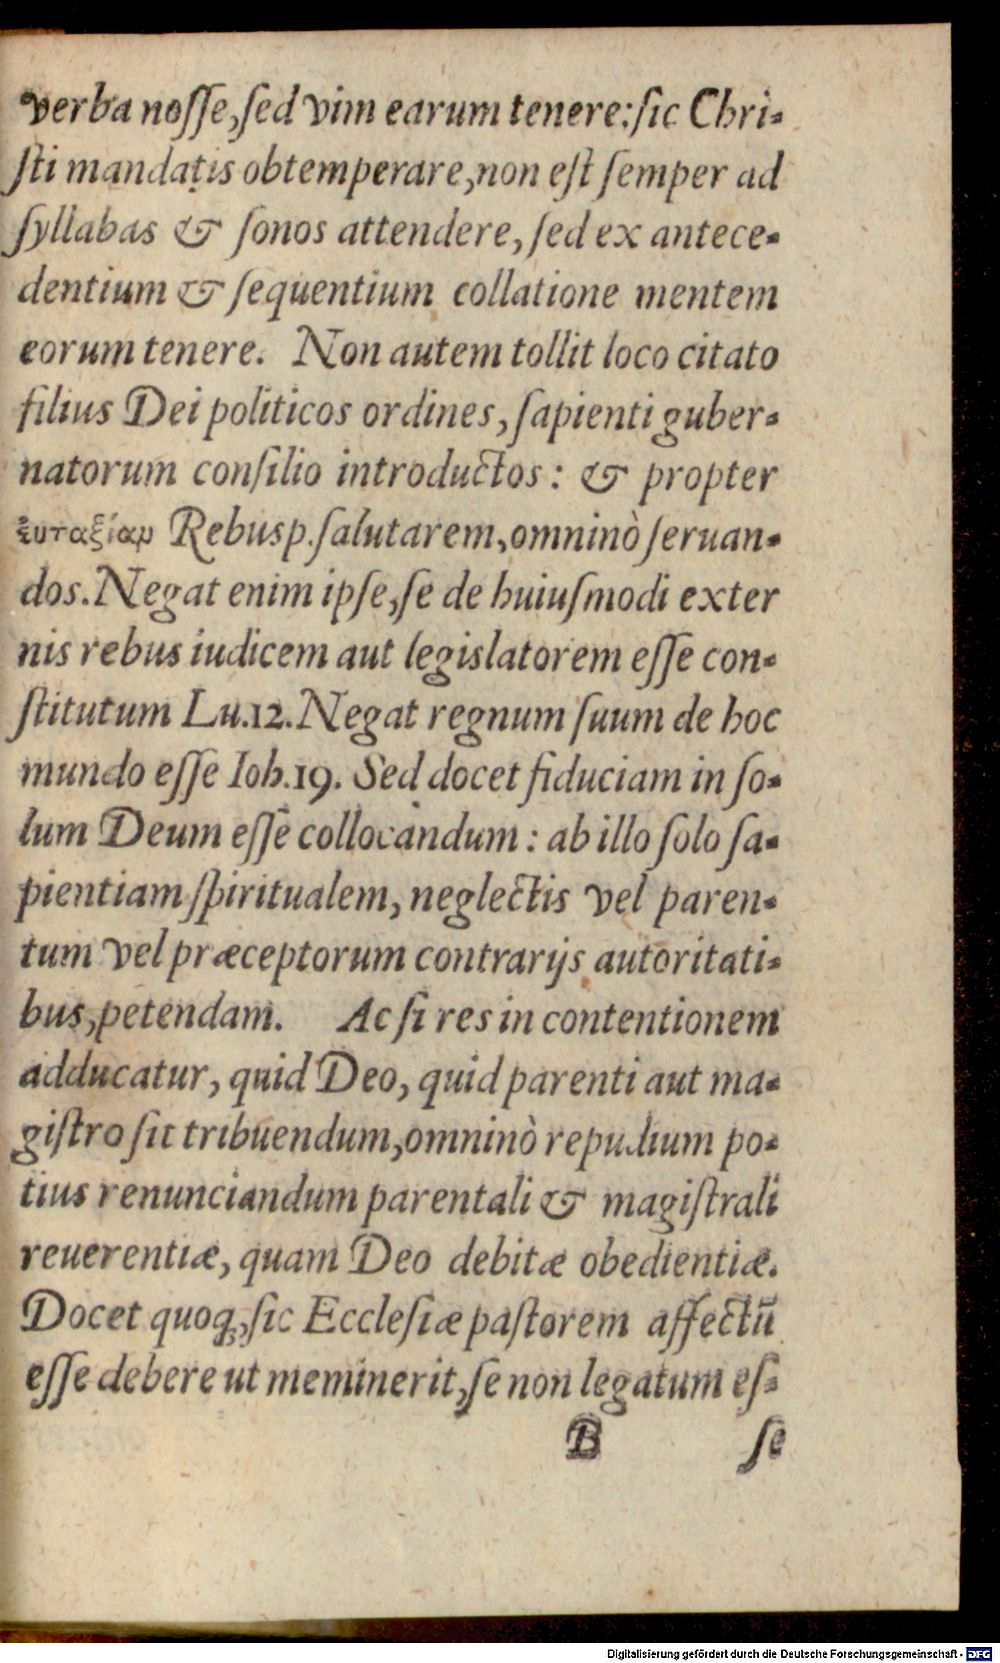 verba noſſe, ſed vim earum tenere: ſic Chri-
ſti mandatis obtemperare, non eſt ſemper ad
ſyllabas & ſonos attendere, ſed ex antece-
dentium & ſequentium collatione mentem
eorum tenere. Non autem tollit loco citato
filius Dei politicos ordines, ſapienti guber-
natorum conſilio introductos: & propter
ξυταξίαμ Rebusp. ſalutarem, omninò ſeruan-
dos. Negat enim ipſe, ſe de huiuſmodi exter
nis rebus iudicem aut legislatorem eſſe con-
ſtitutum Lu.12. Negat regnum ſuum de hoc
mundo eſſe Ioh.19. Sed docet fiduciam in ſo-
lum Deum eſſe collocandum: ab illo ſolo ſa-
pientiam ſpiritualem, neglectis vel paren-
tum vel præceptorum contrarijs autoritati-
bus, petendam. Ac ſi res in contentionem
adducatur, quid Deo, quid parenti aut ma-
giſtro ſit tribuendum, omninò repudium po-
tius renunciandum parentali & magiſtrali
reuerentiæ, quam Deo debitæ obedientiæ.
Docet quoq;, ſic Eccleſiæ paſtorem affectū
eſſe debere ut meminerit, ſe non legatum eſ-
B ſe
Digitalisierung gefördert durch die Deutsche Forschungsgemeinschaft - DFG